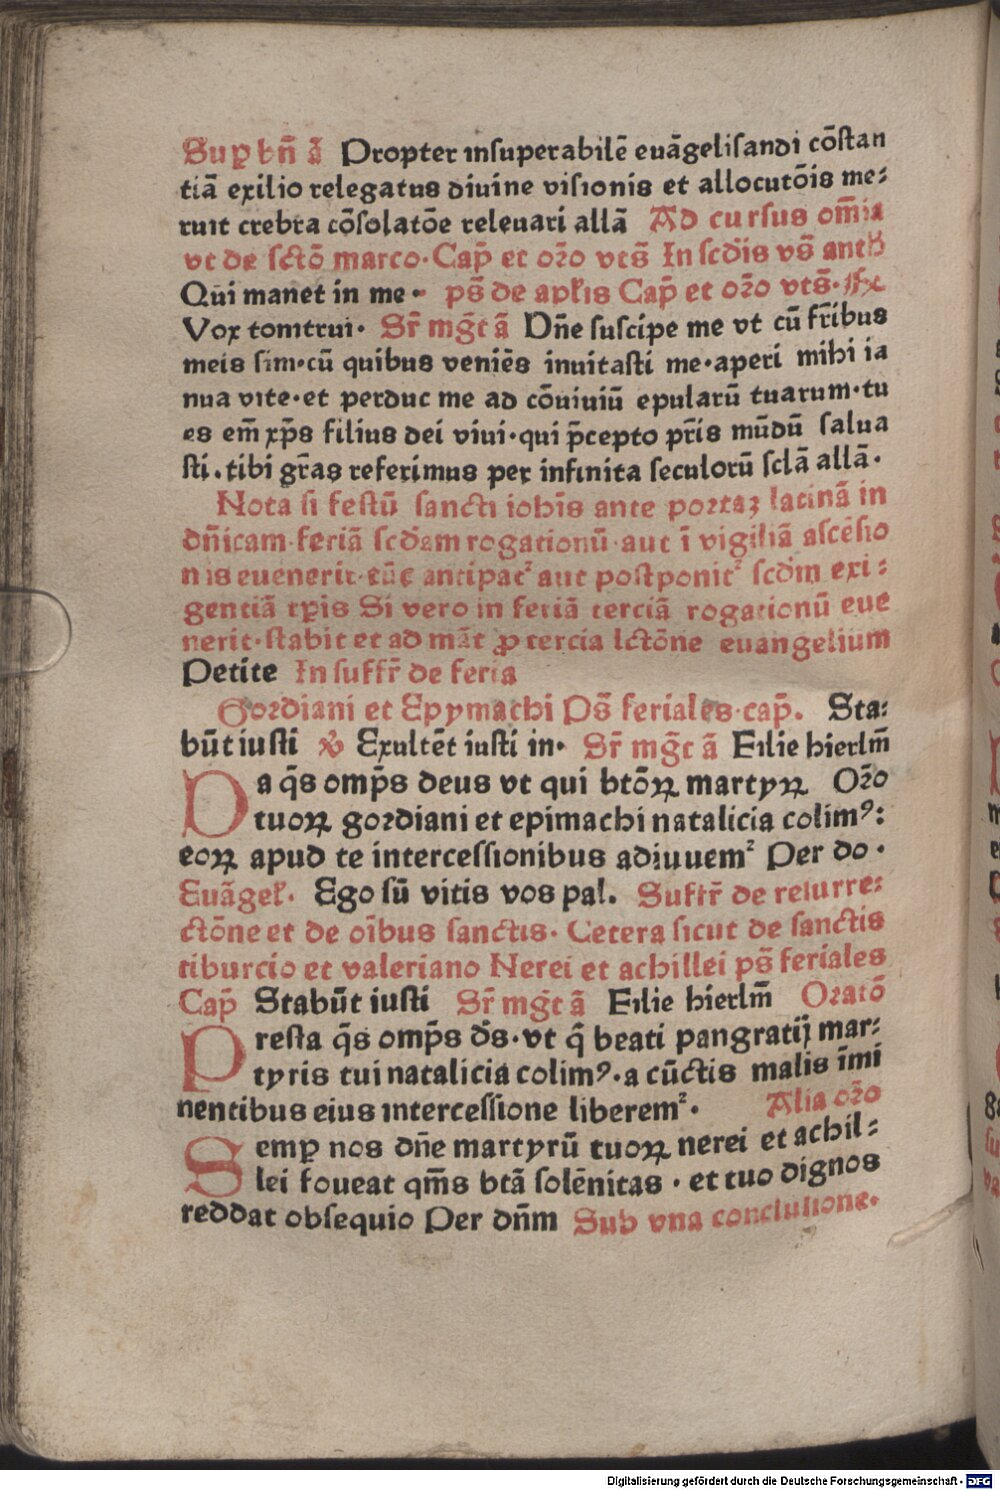 Suꝑ bn̄ ā Propter inſuperabilē euāgeliſandi cōſtan
tiā exilio relegatus diuine viſionis et allocutōis me⸗
ruit crebra cōſolatōe releuari allā Ad curſus om̄ia
vt de ſctō marco· Cap̄ et oꝛo vts̄ In ſcdis vs̄ anth
Qui manet in me· ps̄ de apłis Cap̄ et oꝛo vts̄·
Vox tonitrui· Sr̄ mḡt ā Dn̄e ſuſcipe me vt cū fr̄ibus
meis ſim·cū quibus veniēs inuitaſti me·aperi mihi ia
nua vite·et perduc me ad cōuiuiū epularū tuarum·tu
es em̄ xp̄s filius dei viui·qui p̄cepto pr̄is mūdū ſalua
ſti·tibi gr̄as referimus per infinita ſeculorū ſclā allā·
Nota ſi feſtū ſancti iohīs ante poꝛtaꝫ latinā in
dn̄icam·feriā ſcdam rogationū·aut ī vigiliā aſcēſio
nis euenerit·tūc antipatꝰ aut poſtponitꝰ ſcdm exi⸗
gentiā tꝑis Si vero in feriā terciā rogationū eue
nerit·ſtabit et ad māt ꝓ tercia lctōne euangelium
Petite In ſuffr̄ de feria
Goꝛdiani et Epymachi Ps̄ feriales·cap̄. Sta⸗
būt iuſti ꝟ Exultēt iuſti in· Sr̄ mḡt ā Filie hierlm̄
Da q̄s omp̄s deus vt qui btōꝝ martyꝝ Oꝛo
tuoꝝ goꝛdiani et epimachi natalicia colimꝰ:
eoꝝ apud te interceſſionibus adiuuem² Per do·
Euāgeł· Ego ſū vitis vos pal. Suffr̄ de reſurre⸗
ctōne et de oībus ſanctis· Cetera ſicut de ſanctis
tiburcio et valeriano Nerei et achillei ps̄ feriales
Cap̄ Stabūt iuſti Sr̄ mḡt ā Filie hierlm̄ Oꝛatō
Preſta q̄s omp̄s ds̄·vt q̄ beati pangratij mar⸗
tyris tui natalicia colimꝰ·a cūctis malis īmi
nentibus eius interceſſione liberem²· Alia oꝛo
Semꝑ nos dn̄e martyrū tuoꝝ nerei et achil⸗
lei foueat qm̄s btā ſolēnitas · et tuo dignos
reddat obſequio Per dn̄m Sub vna concluſione·
Digitalisierung gefördert durch die Deutsche Forschungsgemeinschaft · DFG